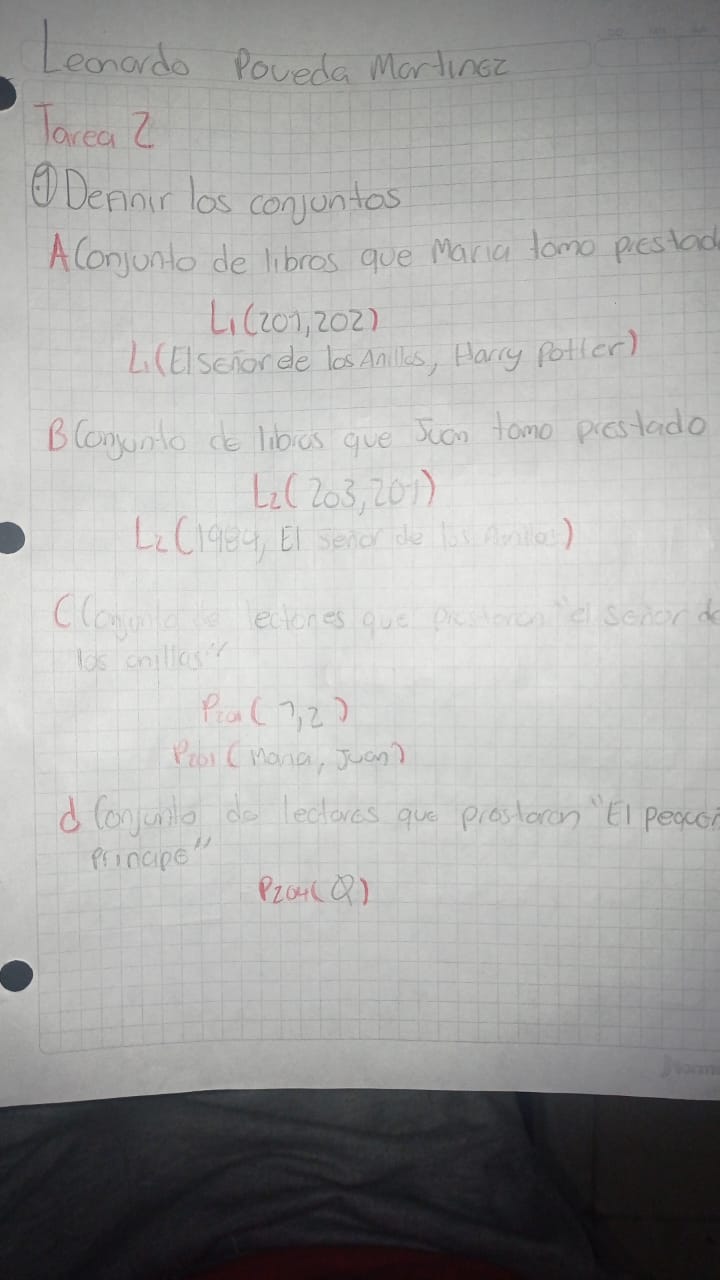 Leonardo Poveda Martinez
Tarea 2
① Definir los conjuntos
A Conjunto de libros que Maria tomo prestad
L₁(201,202)
L₁(El señor de los Anillos, Harry Potter)
B Conjunto de libros que Juan tomo prestado
L₂(203,201)
L₂(1984, El señor de los Anillos)
C Conjunto de lectores que prestaron "el señor de
los anillos"
P₂₀₁(1,2)
P₂₀₁(Maria, Juan)
d Conjunto de lectores que prestaron "El pequeñ
Principe"
P₂₀₄(Ø)